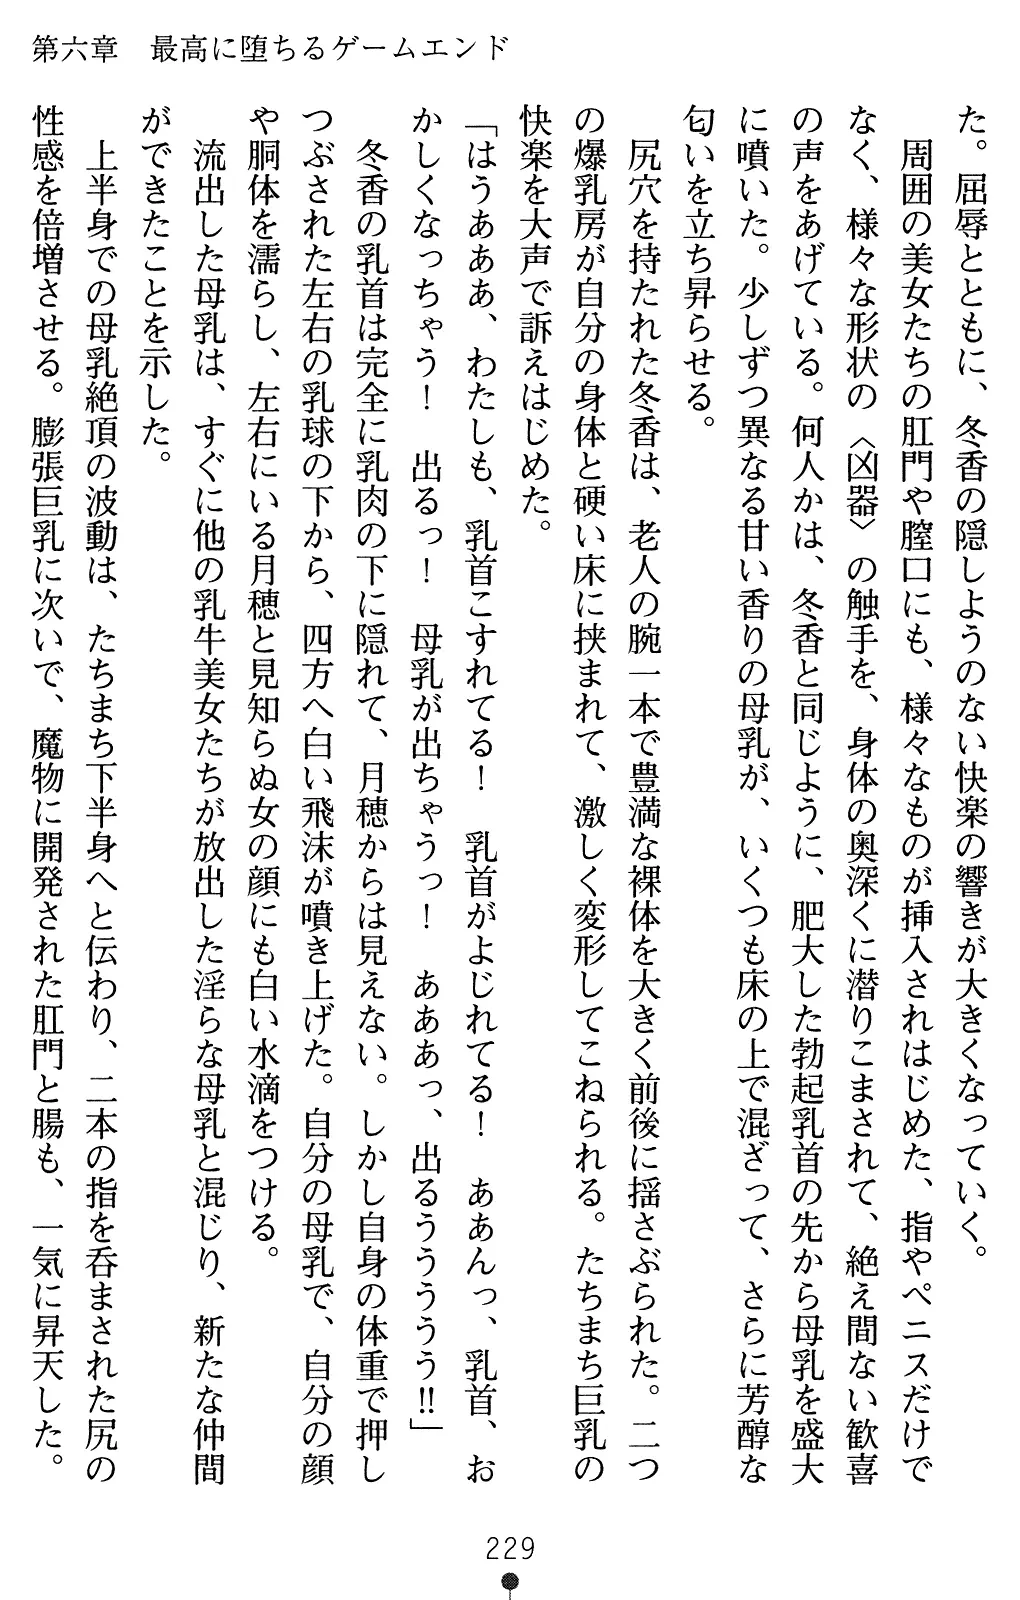 第六章　最高に堕ちるゲームエンド
た。屈辱とともに、冬香の隠しようのない快楽の響きが大きくなっていく。
　周囲の美女たちの肛門や膣口にも、様々なものが挿入されはじめた、指やペニスだけで
なく、様々な形状の〈凶器〉の触手を、身体の奥深くに潜りこまされて、絶え間ない歓喜
の声をあげている。何人かは、冬香と同じように、肥大した勃起乳首の先から母乳を盛大
に噴いた。少しずつ異なる甘い香りの母乳が、いくつも床の上で混ざって、さらに芳醇な
匂いを立ち昇らせる。
　尻穴を持たれた冬香は、老人の腕一本で豊満な裸体を大きく前後に揺さぶられた。二つ
の爆乳房が自分の身体と硬い床に挟まれて、激しく変形してこねられる。たちまち巨乳の
快楽を大声で訴えはじめた。
「はうあああ、わたしも、乳首こすれてる！　乳首がよじれてる！　ああんっ、乳首、お
かしくなっちゃう！　出るっ！　母乳が出ちゃうっ！　あああっ、出るうううう‼」
　冬香の乳首は完全に乳肉の下に隠れて、月穂からは見えない。しかし自身の体重で押し
つぶされた左右の乳球の下から、四方へ白い飛沫が噴き上げた。自分の母乳で、自分の顔
や胴体を濡らし、左右にいる月穂と見知らぬ女の顔にも白い水滴をつける。
　流出した母乳は、すぐに他の乳牛美女たちが放出した淫らな母乳と混じり、新たな仲間
ができたことを示した。
　上半身での母乳絶頂の波動は、たちまち下半身へと伝わり、二本の指を呑まされた尻の
性感を倍増させる。膨張巨乳に次いで、魔物に開発された肛門と腸も、一気に昇天した。
229